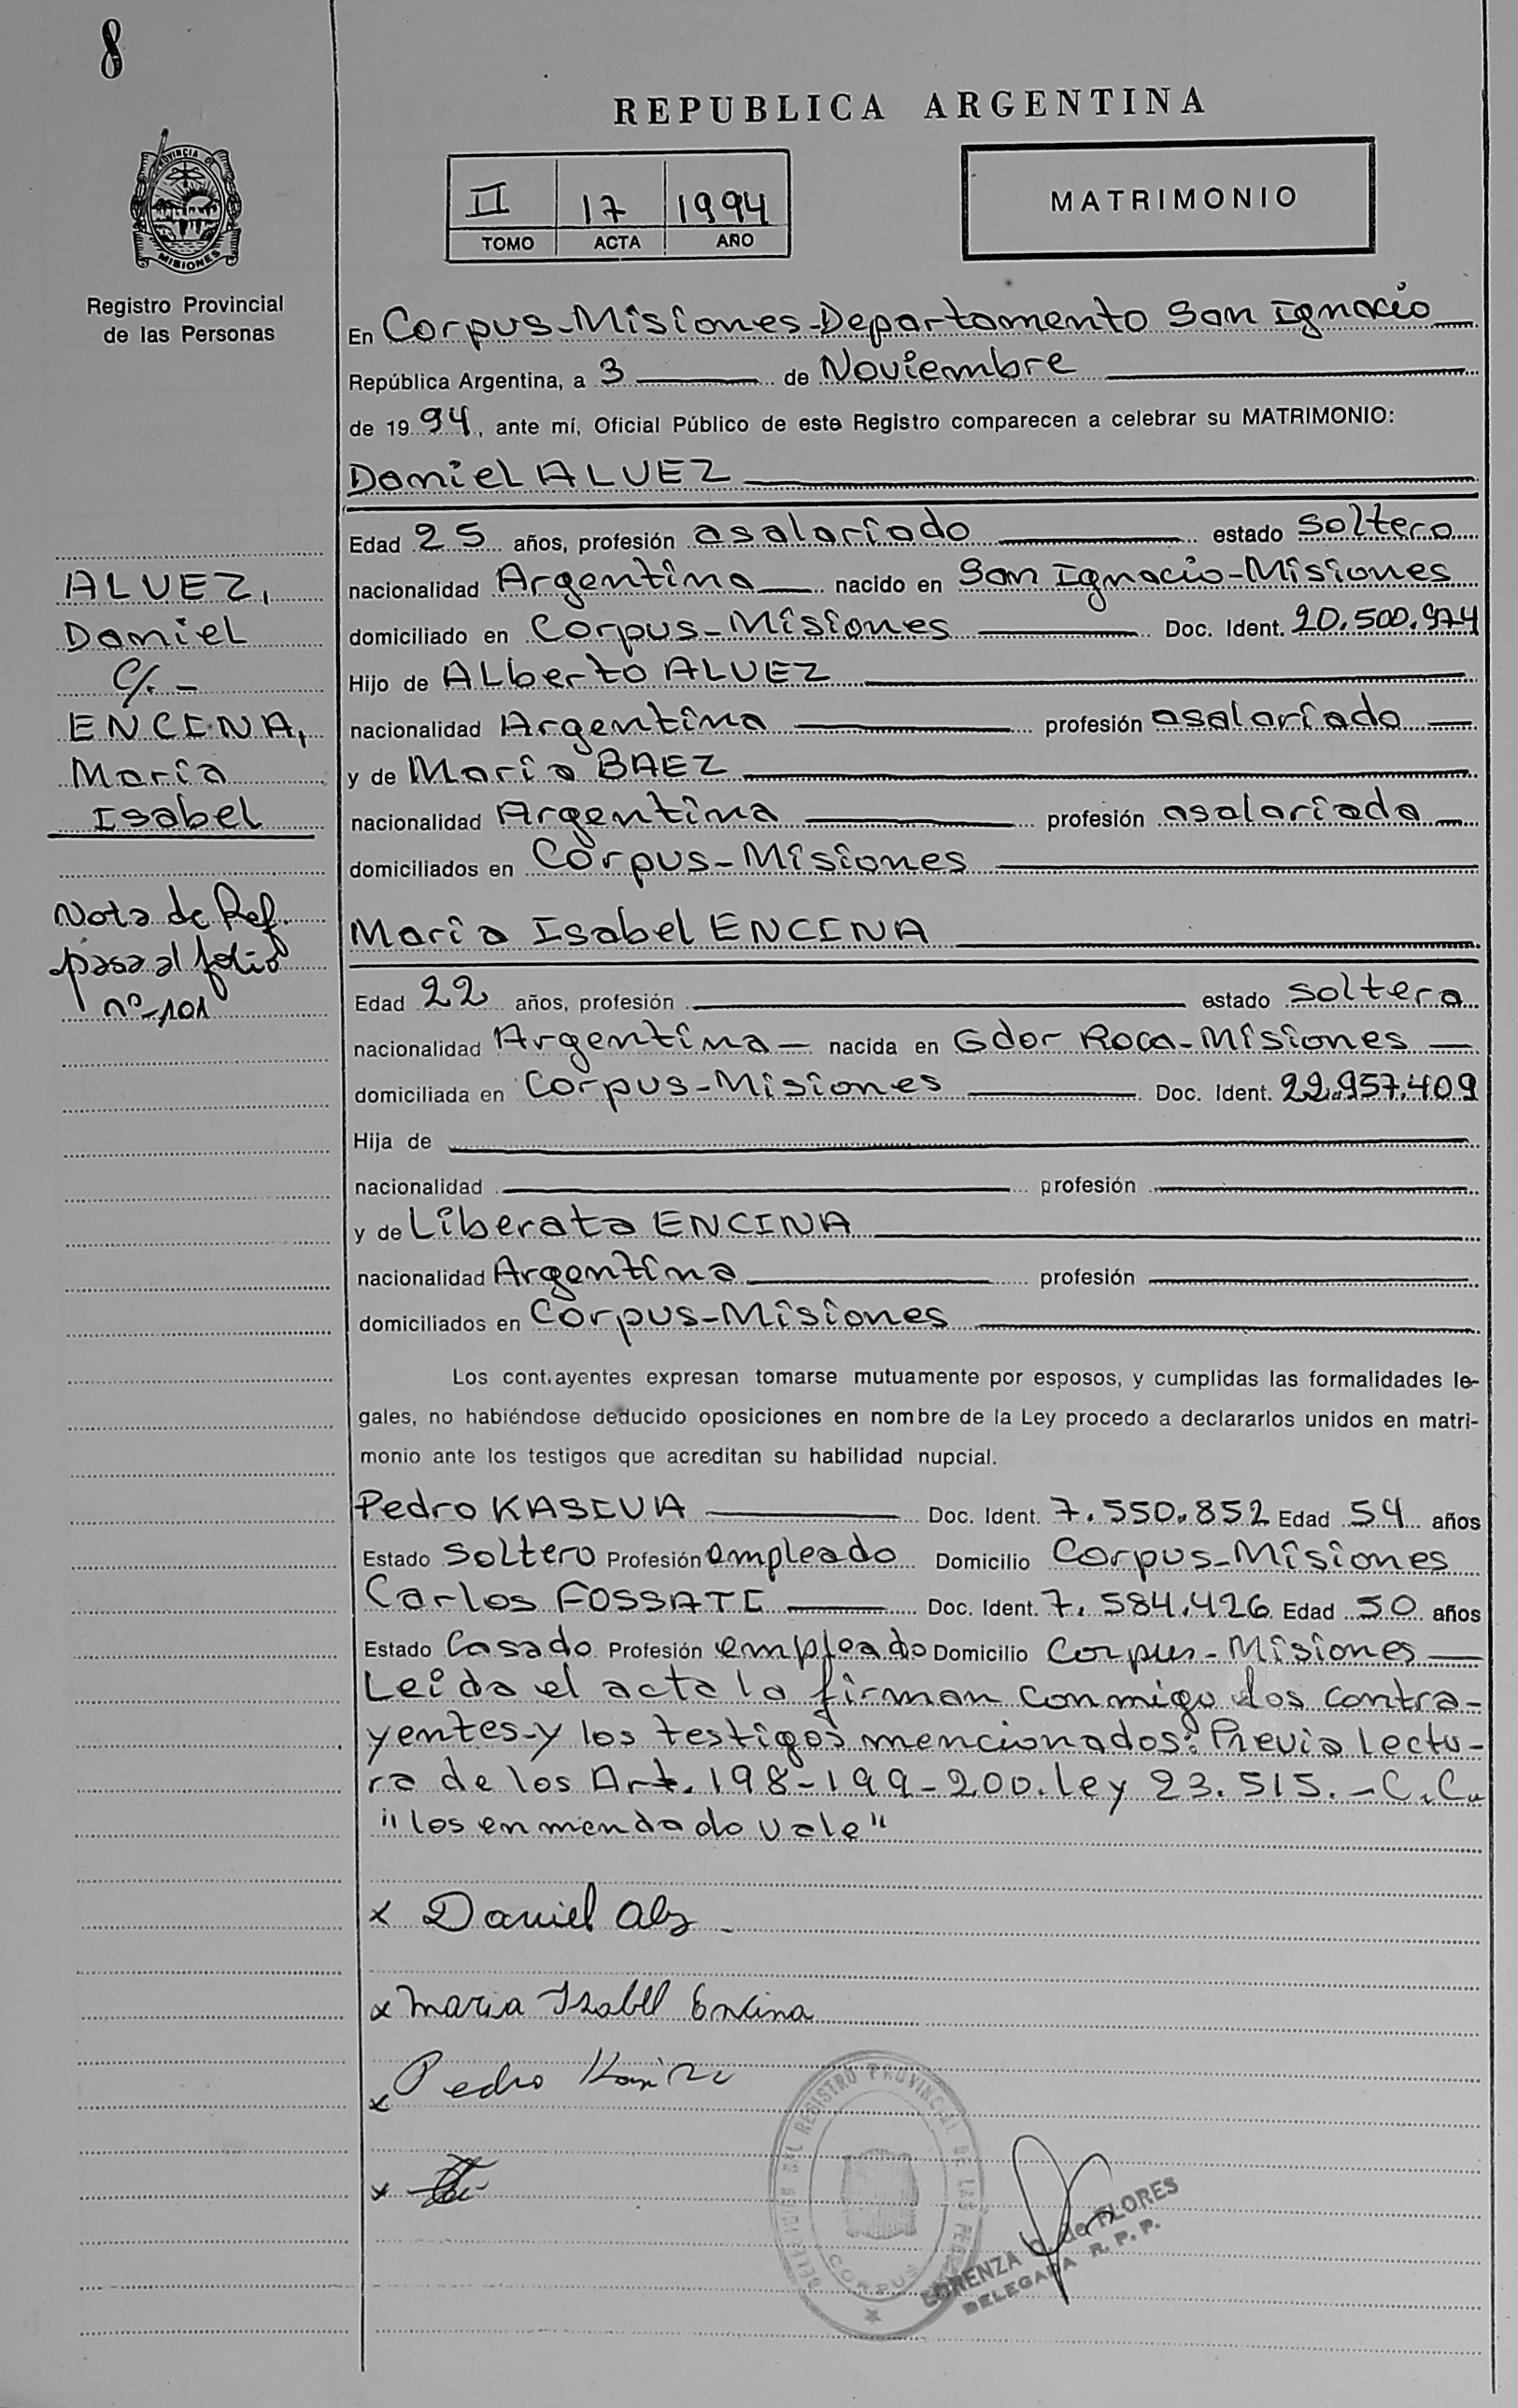 8
REPUBLICA ARGENTINA
II 17 1994
TOMO ACTA AÑO
MATRIMONIO
PROVINCIA DE
MISIONES
Registro Provincial
de las Personas
ALVEZ,
Daniel
C/. -
ENCINA,
María
Isabel
Nota de Ref.
pasa al folio
nº-101
En Corpus-Misiones-Departamento San Ignacio
República Argentina, a 3 de Noviembre
de 1994, ante mí, Oficial Público de este Registro comparecen a celebrar su MATRIMONIO:
Daniel ALVEZ
Edad 25 años, profesión asalariado estado soltero
nacionalidad Argentina nacido en San Ignacio-Misiones
domiciliado en Corpus-Misiones Doc. Ident. 20.500.974
Hijo de ALberto ALVEZ
nacionalidad Argentina profesión asalariado
y de María BAEZ
nacionalidad Argentina profesión asalariada
domiciliados en Corpus-Misiones
María Isabel ENCINA
Edad 22 años, profesión estado soltera
nacionalidad Argentina nacida en Gdor Roca-Misiones
domiciliada en Corpus-Misiones Doc. Ident. 22.957.409
Hija de
nacionalidad profesión
y de Liberata ENCINA
nacionalidad Argentina profesión
domiciliados en Corpus-Misiones
Los cont.ayentes expresan tomarse mutuamente por esposos, y cumplidas las formalidades le-
gales, no habiéndose deducido oposiciones en nombre de la Ley procedo a declararlos unidos en matri-
monio ante los testigos que acreditan su habilidad nupcial.
Pedro KASIVA Doc. Ident. 7.550.852 Edad 54 años
Estado Soltero Profesión empleado Domicilio Corpus-Misiones
Carlos FOSSATI Doc. Ident. 7.584.426 Edad 50 años
Estado Casado Profesión empleado Domicilio Corpus-Misiones
Leida el acta la firman conmigo los contra-
yentes-y los testigos mencionados: Previa lectu-
ra de los Art. 198-199-200.ley 23.515.-C.C.
"los enmendado vale"
x Daniel
x Maria Isabel Encina
x Pedro
x
DEL REGISTRO PROVINCIAL DE LAS
CORPUS
LORENZA de FLORES
DELEGADA R.P.P.